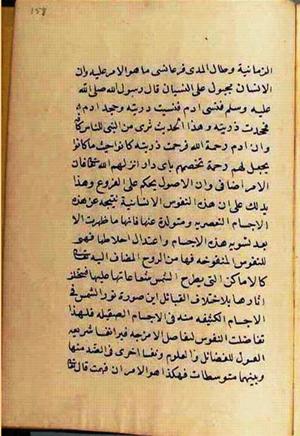 ١٥٨
الزمانية وطال المدى فرعا نسى ما هو الامر عليه وان
الانسان مجبول على النسيان قال رسول الله صلى الله
عليه وسلم فنسى ادم فنسيت ذريته وجحد ادم
فجحدت ذريته وهذا الحديث
وان ادم رحمة الله فرحمت ذريته كانوا حيث ما كانوا
يجعل لهم رحمة تخصهم باى دار انزلهم الله تعالى فان
الامر اضافى وان الاصول يحكم على الفروع وهذا
يدلك على ان هذه النفوس الانسانية نتيجة عن هذه
الاجسام العنصرية ومتولدة عنها فانها ما ظهرت الا
بعد تسوية هذه الاجسام واعتدال اخلاطها فهى
للنفوس المنفوخة فيها من الروح المضاف اليه تعالى
كالاماكن التى يطرح الشمس شعاعاتها عليها فتختلف
اثارها باختلاف القبائل اين صورة نور الشمس فى
الاجسام الكثيفه منه فى الاجسام الصقيله فلهذا
تفاضلت النفوس لتفاضل الامزجه فيرى نفسا سريعه
القبول للفضائل والعلوم ونفسا اخرى فى الضد منها
وبينهما متوسطات فهكذا هو الامر ان فهمت قال تعالى